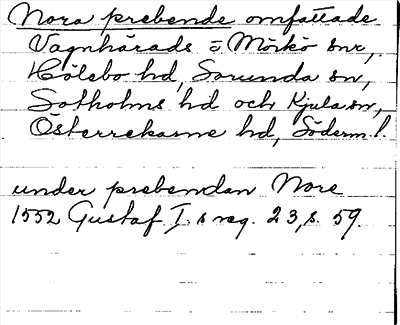 Nora prebende omfattade
Vagnhärads = Mörkö snr,
Hölebo hd, Sorunda sn,
Sotholms hd och Kjula sn,
Österrekarne hd, Söderml.
under prebendan Nore
1552 Gustaf I. s reg. 23, s. 59.